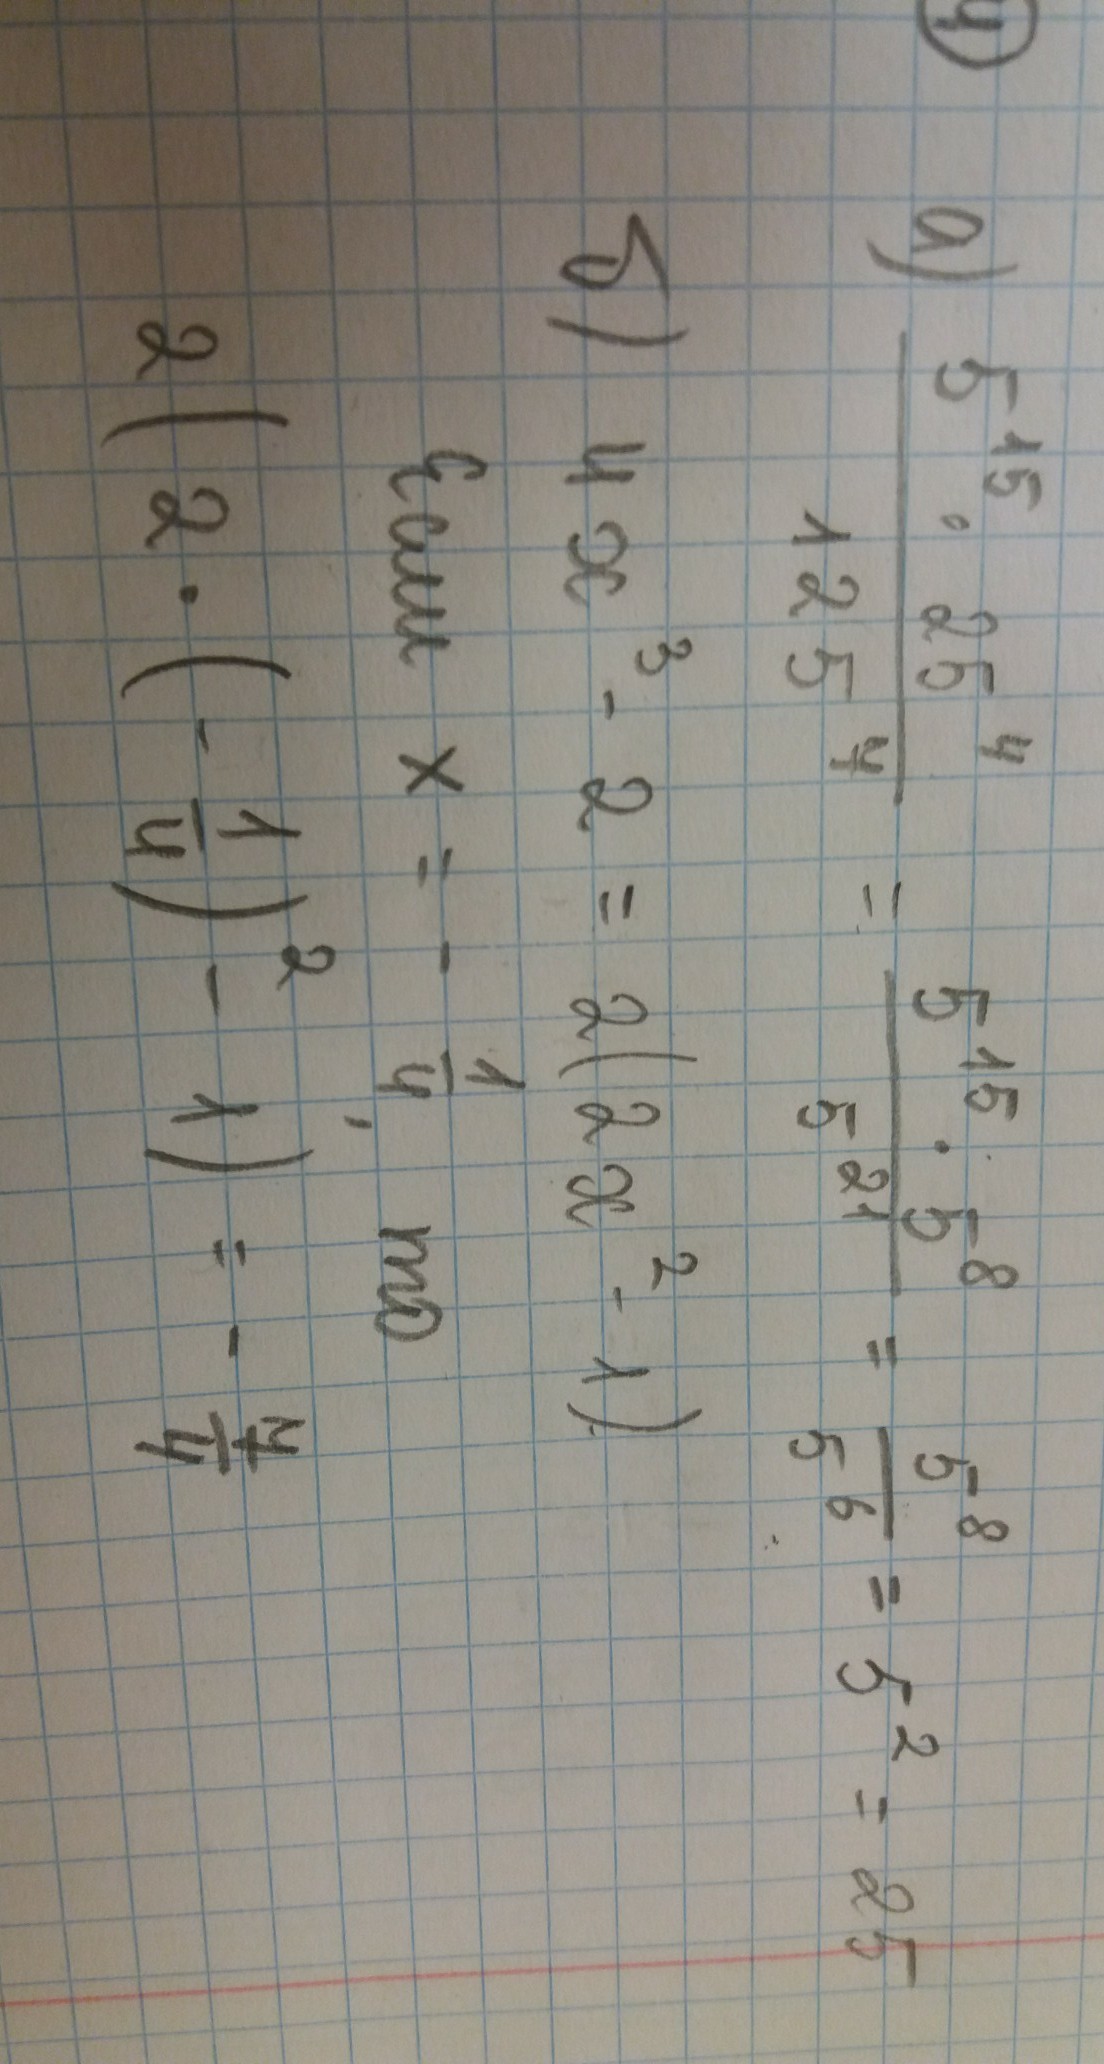 4
а) (5¹⁵ · 25⁴)/(125⁷) = (5¹⁵ · 5⁸)/(5²¹) = 5⁸/5⁶ = 5² = 25
б) 4x³ - 2 = 2(2x² - 1)
Если x = - 1/4, то
2(2 · (- 1/4)² - 1) = - 7/4